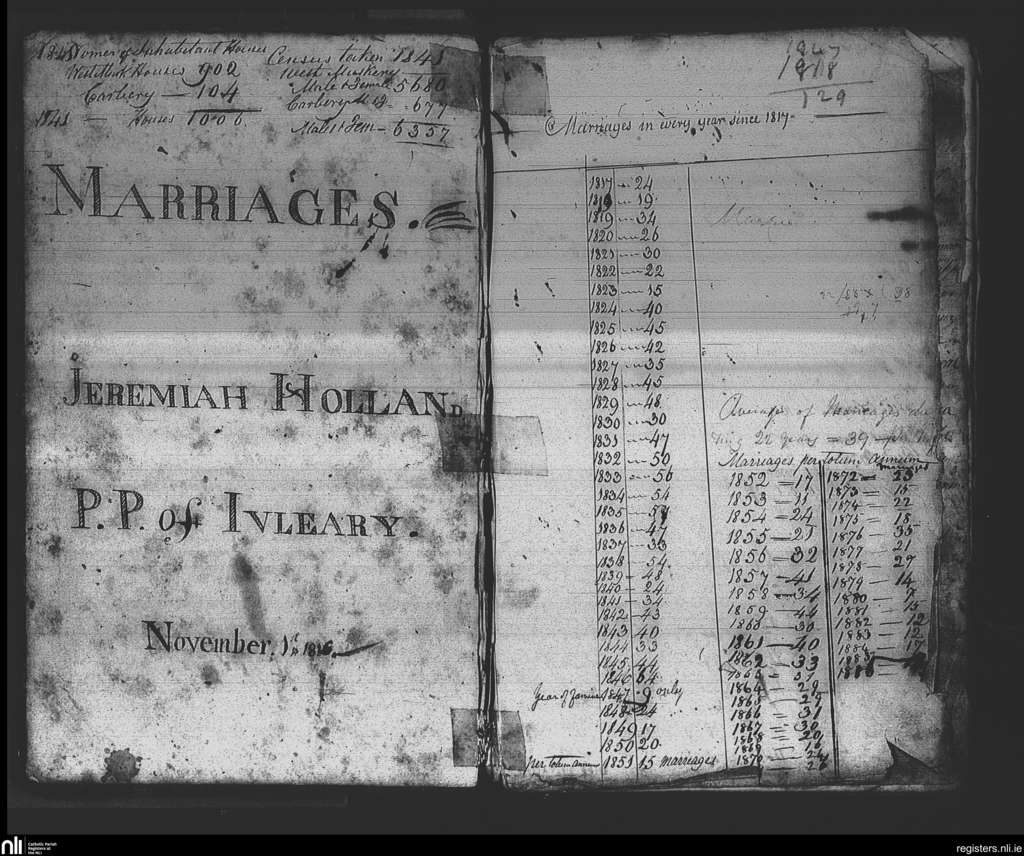 1841 Number of Inhabitant Houses
West Musk Houses 902
Carbery — 104
1841 — Houses 1006
Census taken 1841
West Muskery
Male & Female 5680
Carbery M & F - 677
Males & Fem - 6357
MARRIAGES.
JEREMIAH HOLLAND
P. P. of IVLEARY.
November. 1st 1816.
1847
1818
129
Marriages in every year since 1817
1817 — 24
1818 — 19
1819 — 34
1820 — 26
1821 — 30
1822 — 22
1823 — 15
1824 — 40
1825 — 45
1826 — 42
1827 — 35
1828 — 45
1829 — 48
1830 — 30
1831 — 47
1832 — 50
1833 — 56
1834 — 54
1835 — 57
1836 — 47
1837 — 33
1838 — 54
1839 — 48
1840 — 24
1841 — 34
1842 — 43
1843 40
1844 33
1845 44
1846 64
Year of famine 1847 . 9 only
1848 24
1849 17
1850 20
per totum annum 1851 15 marriages
Average of Marriages
22 years = 39
Marriages per totum annum
1852 = 17
1853 = 11
1854 = 24
1855 = 21
1856 = 32
1857 — 41
1858 — 34
1859 — 44
1860 — 30
1861 — 40
1862 — 33
1863 — 37
1864 — 29
1865 — 29
1866 — 31
1867 — 30
1868 — 20
1869 — 16
1870
marriages
1872 — 23
1873 — 15
1874 — 22
1875 — 18
1876 — 35
1877 — 21
1878 — 29
1879 — 14
1880 — 7
1881 — 15
1882 — 12
1883 — 12
1884 — 17
1885
1886
nli
Catholic Parish
Registers at
the NLI
registers.nli.ie